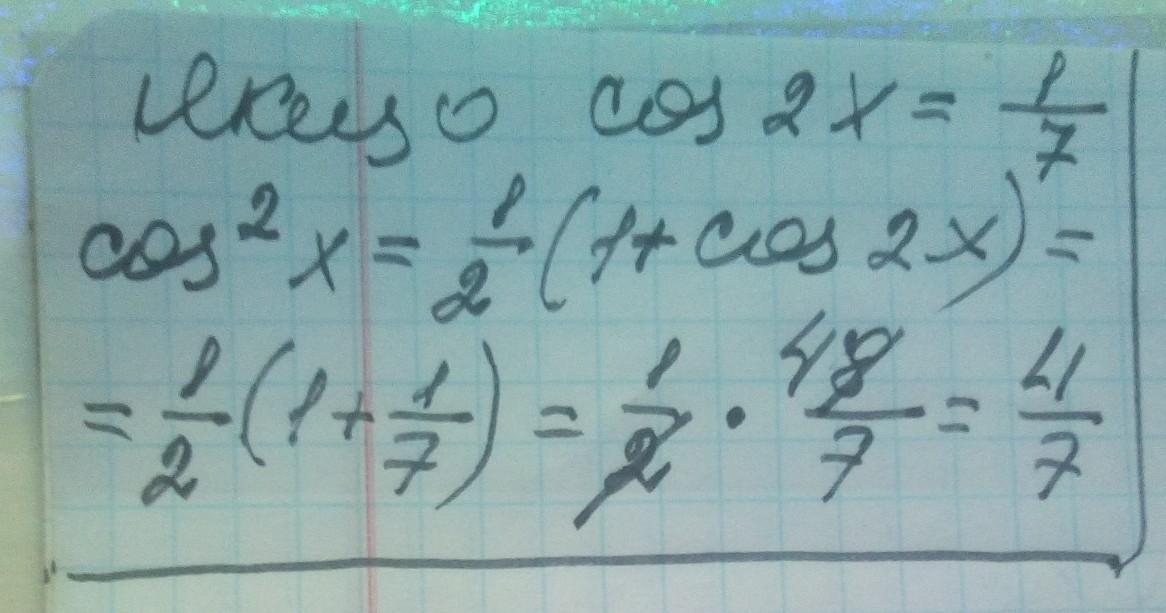 Якщо cos 2x = 1/7
cos² x = 1/2 (1 + cos 2x) =
= 1/2 (1 + 1/7) = 1/2 · 4 8/7 = 4/7